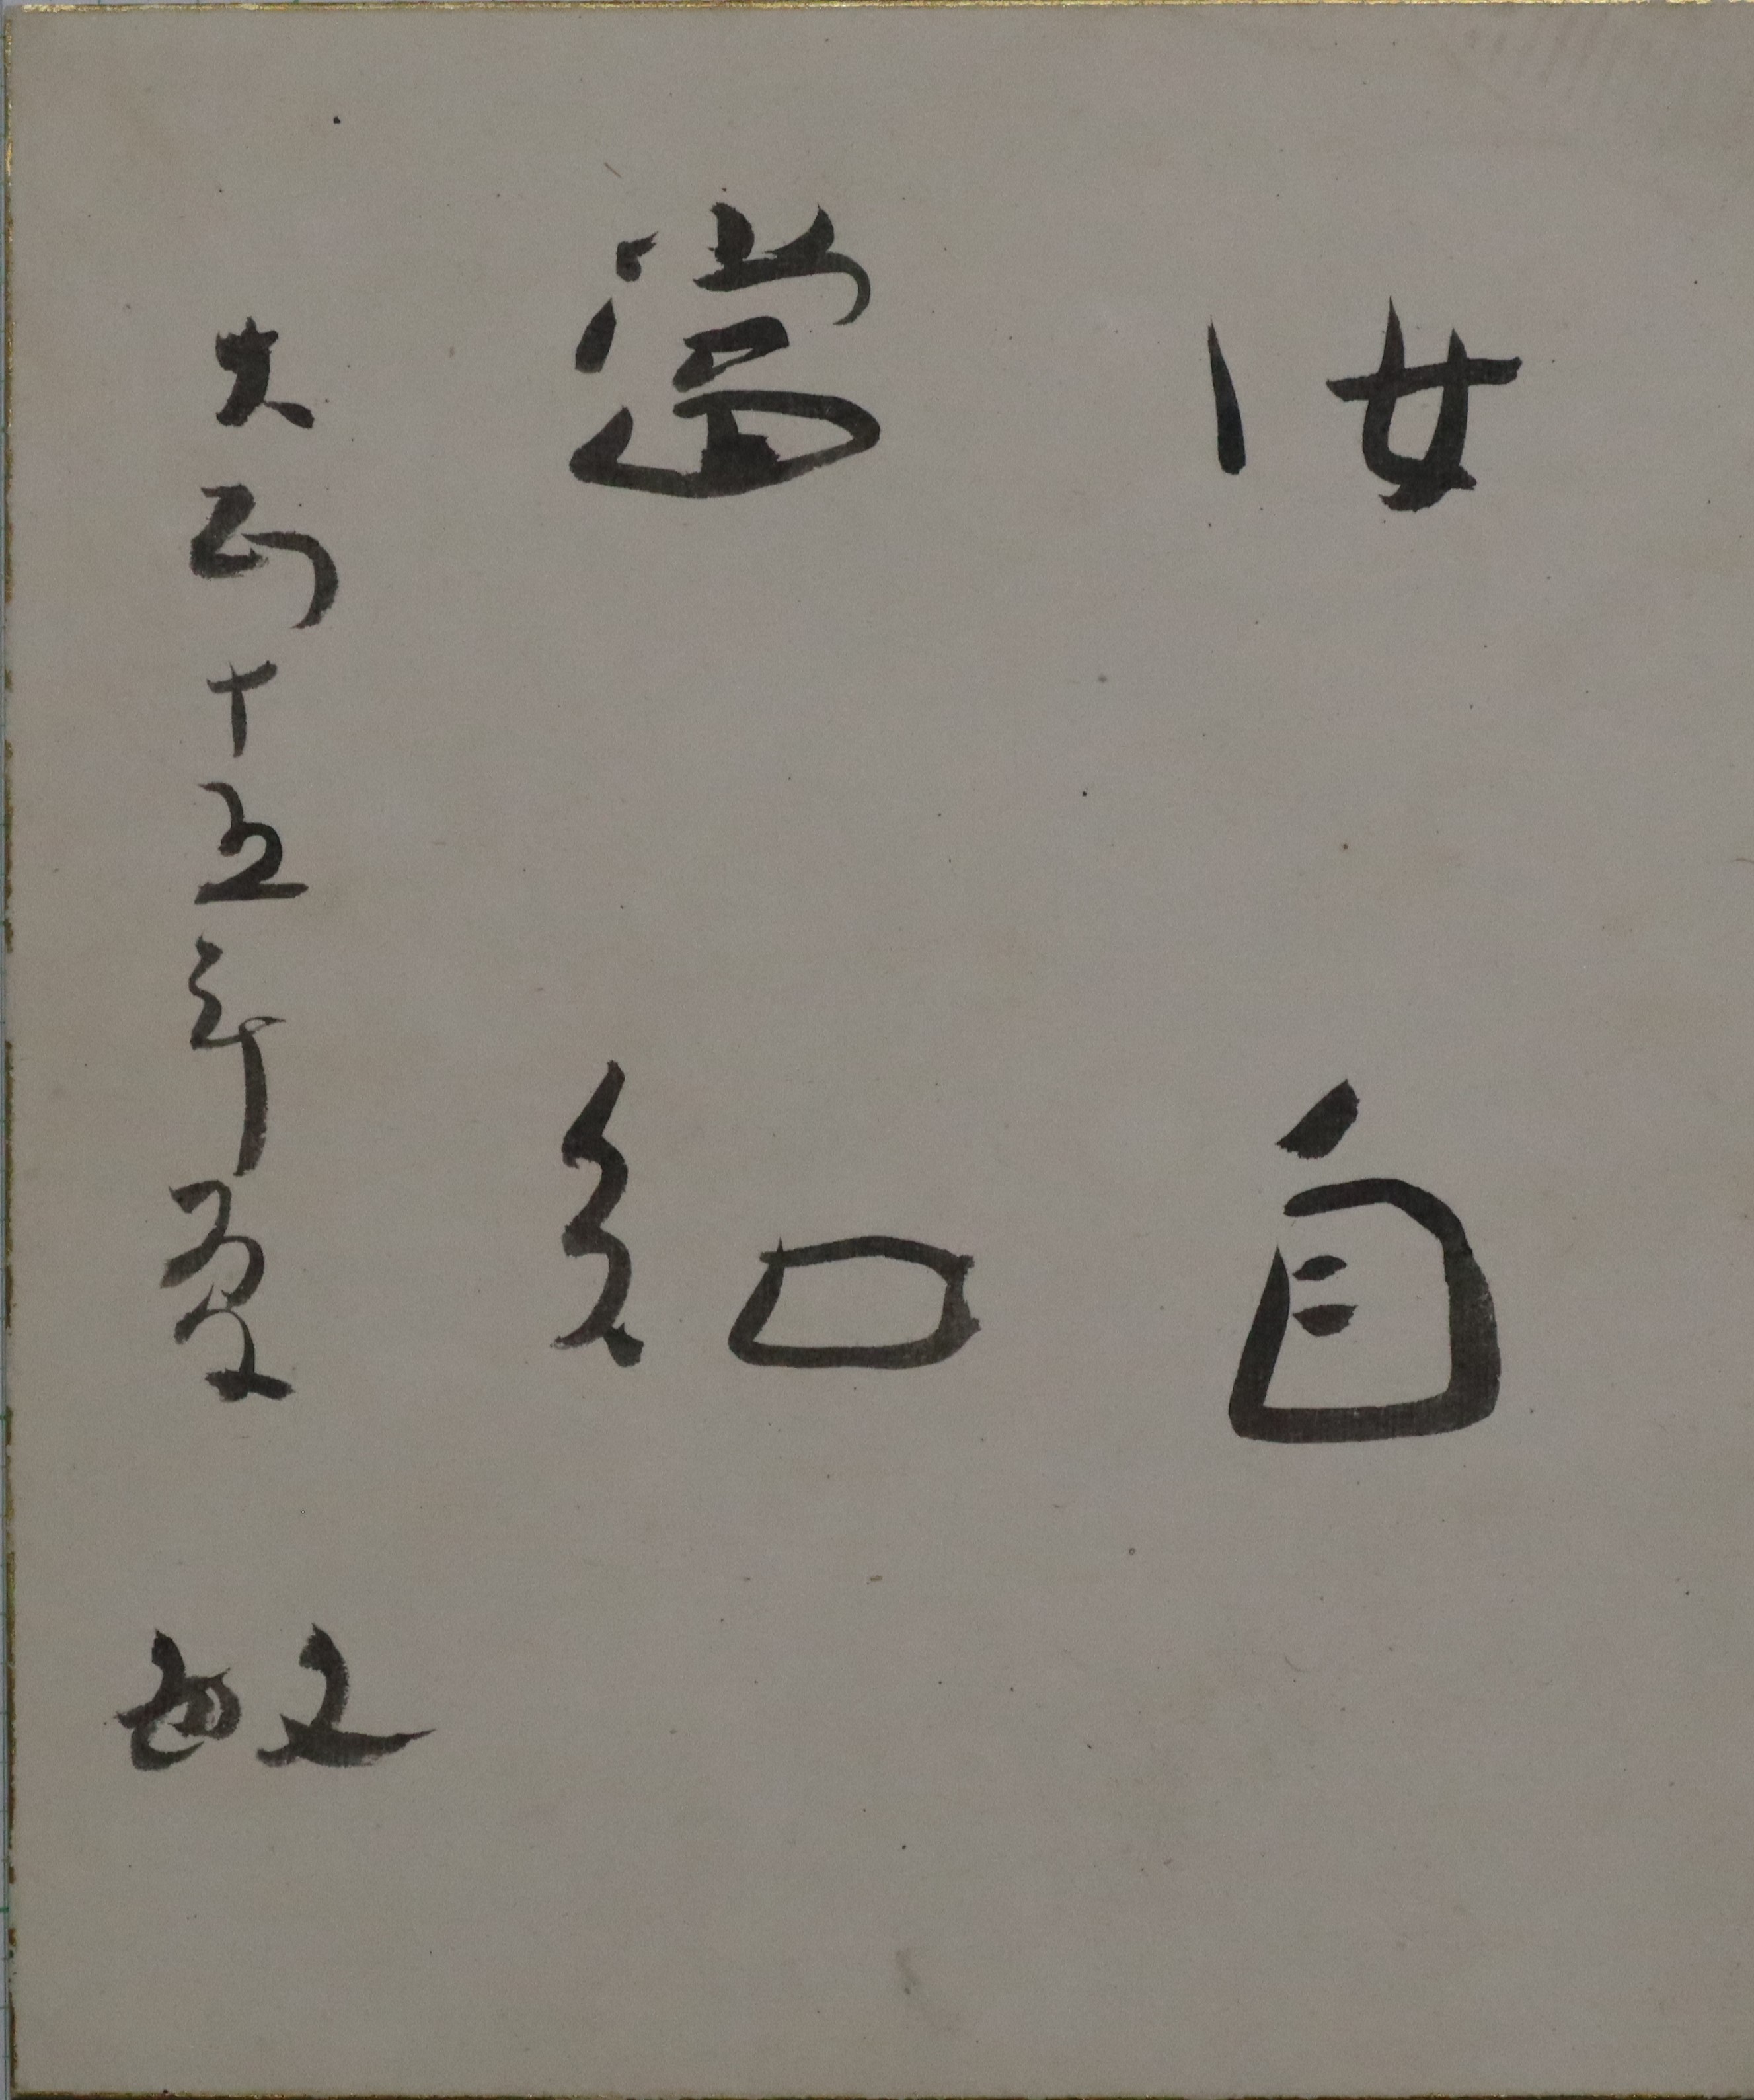 汝自
當知
大正十五年夏 敏